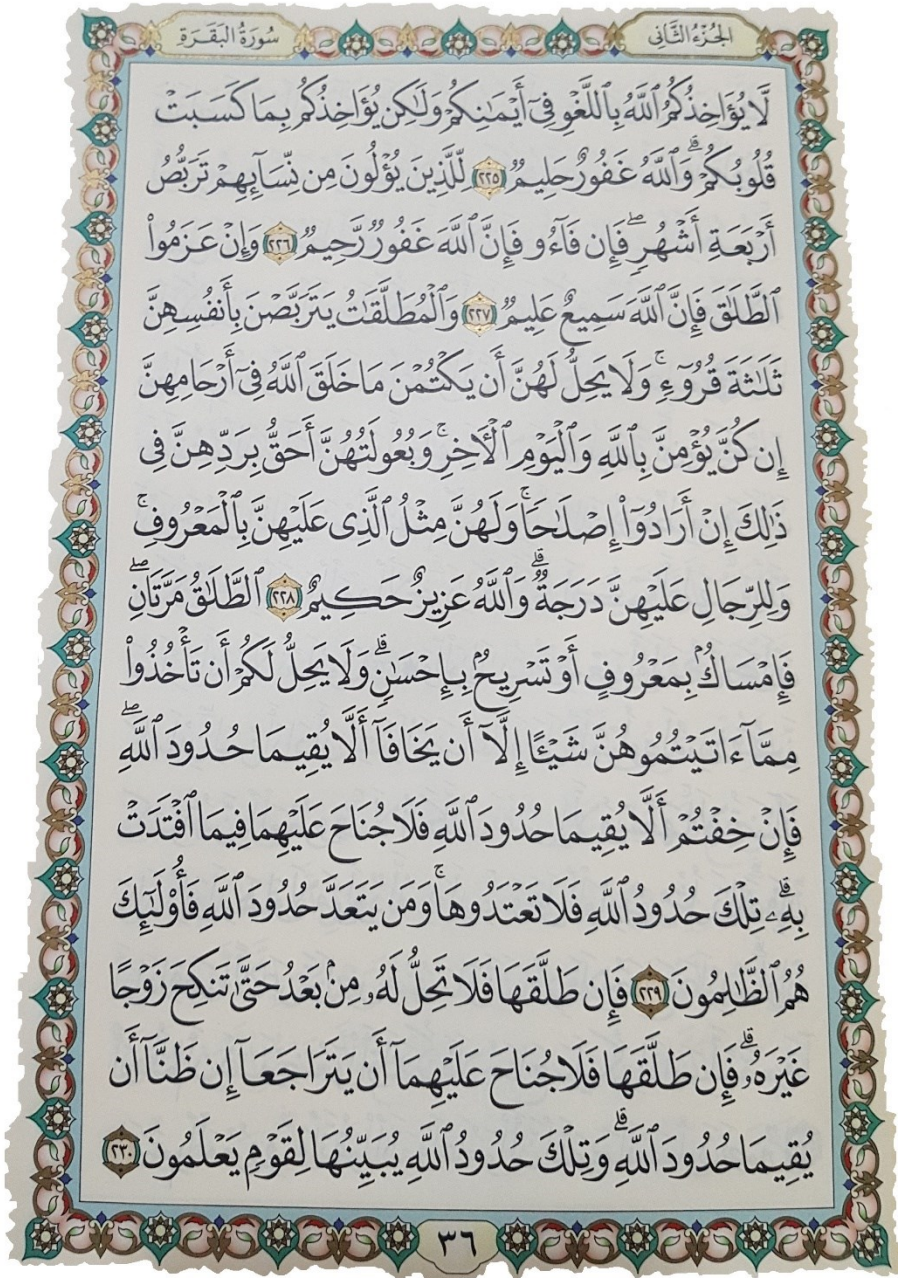 الجُزْءُ الثَّانِي
سُورَةُ البَقَرَةِ
لَّا يُؤَاخِذُكُمُ ٱللَّهُ بِٱللَّغْوِ فِىٓ أَيْمَٰنِكُمْ وَلَٰكِن يُؤَاخِذُكُم بِمَا كَسَبَتْ
قُلُوبُكُمْ ۗ وَٱللَّهُ غَفُورٌ حَلِيمٌ ٢٢٥ لِّلَّذِينَ يُؤْلُونَ مِن نِّسَآئِهِمْ تَرَبُّصُ
أَرْبَعَةِ أَشْهُرٍ ۖ فَإِن فَآءُو فَإِنَّ ٱللَّهَ غَفُورٌ رَّحِيمٌ ٢٢٦ وَإِنْ عَزَمُوا۟
ٱلطَّلَٰقَ فَإِنَّ ٱللَّهَ سَمِيعٌ عَلِيمٌ ٢٢٧ وَٱلْمُطَلَّقَٰتُ يَتَرَبَّصْنَ بِأَنفُسِهِنَّ
ثَلَٰثَةَ قُرُوٓءٍ ۚ وَلَا يَحِلُّ لَهُنَّ أَن يَكْتُمْنَ مَا خَلَقَ ٱللَّهُ فِىٓ أَرْحَامِهِنَّ
إِن كُنَّ يُؤْمِنَّ بِٱللَّهِ وَٱلْيَوْمِ ٱلْأَخِرِ ۚ وَبُعُولَتُهُنَّ أَحَقُّ بِرَدِّهِنَّ فِى
ذَٰلِكَ إِنْ أَرَادُوٓا۟ إِصْلَٰحًا ۚ وَلَهُنَّ مِثْلُ ٱلَّذِى عَلَيْهِنَّ بِٱلْمَعْرُوفِ ۚ
وَلِلرِّجَالِ عَلَيْهِنَّ دَرَجَةٌ ۗ وَٱللَّهُ عَزِيزٌ حَكِيمٌ ٢٢٨ ٱلطَّلَٰقُ مَرَّتَانِ ۖ
فَإِمْسَاكٌۢ بِمَعْرُوفٍ أَوْ تَسْرِيحٌۢ بِإِحْسَٰنٍ ۗ وَلَا يَحِلُّ لَكُمْ أَن تَأْخُذُوا۟
مِمَّآ ءَاتَيْتُمُوهُنَّ شَيْـًٔا إِلَّآ أَن يَخَافَآ أَلَّا يُقِيمَا حُدُودَ ٱللَّهِ ۖ
فَإِنْ خِفْتُمْ أَلَّا يُقِيمَا حُدُودَ ٱللَّهِ فَلَا جُنَاحَ عَلَيْهِمَا فِيمَا ٱفْتَدَتْ
بِهِۦ ۗ تِلْكَ حُدُودُ ٱللَّهِ فَلَا تَعْتَدُوهَا ۚ وَمَن يَتَعَدَّ حُدُودَ ٱللَّهِ فَأُو۟لَٰٓئِكَ
هُمُ ٱلظَّٰلِمُونَ ٢٢٩ فَإِن طَلَّقَهَا فَلَا تَحِلُّ لَهُۥ مِنۢ بَعْدُ حَتَّىٰ تَنكِحَ زَوْجًا
غَيْرَهُۥ ۗ فَإِن طَلَّقَهَا فَلَا جُنَاحَ عَلَيْهِمَآ أَن يَتَرَاجَعَآ إِن ظَنَّآ أَن
يُقِيمَا حُدُودَ ٱللَّهِ ۗ وَتِلْكَ حُدُودُ ٱللَّهِ يُبَيِّنُهَا لِقَوْمٍ يَعْلَمُونَ ٢٣٠
٣٦